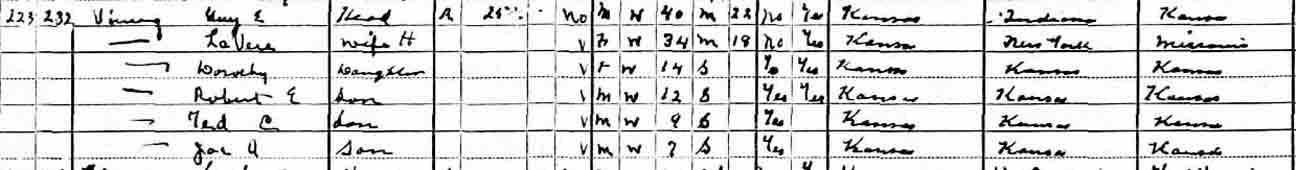 223 232 Vining Guy E Head R 25 No M W 40 M 22 No Yes Kansas Indiana Kansas
— LaVera Wife H V F W 34 M 18 No Yes Kansas New York Missouri
— Dorothy Daughter V F W 14 S Yes Yes Kansas Kansas Kansas
— Robert E Son V M W 12 S Yes Yes Kansas Kansas Kansas
— Ted C Son V M W 9 S Yes Kansas Kansas Kansas
— Joe A Son V M W 7 S Yes Kansas Kansas Kansas